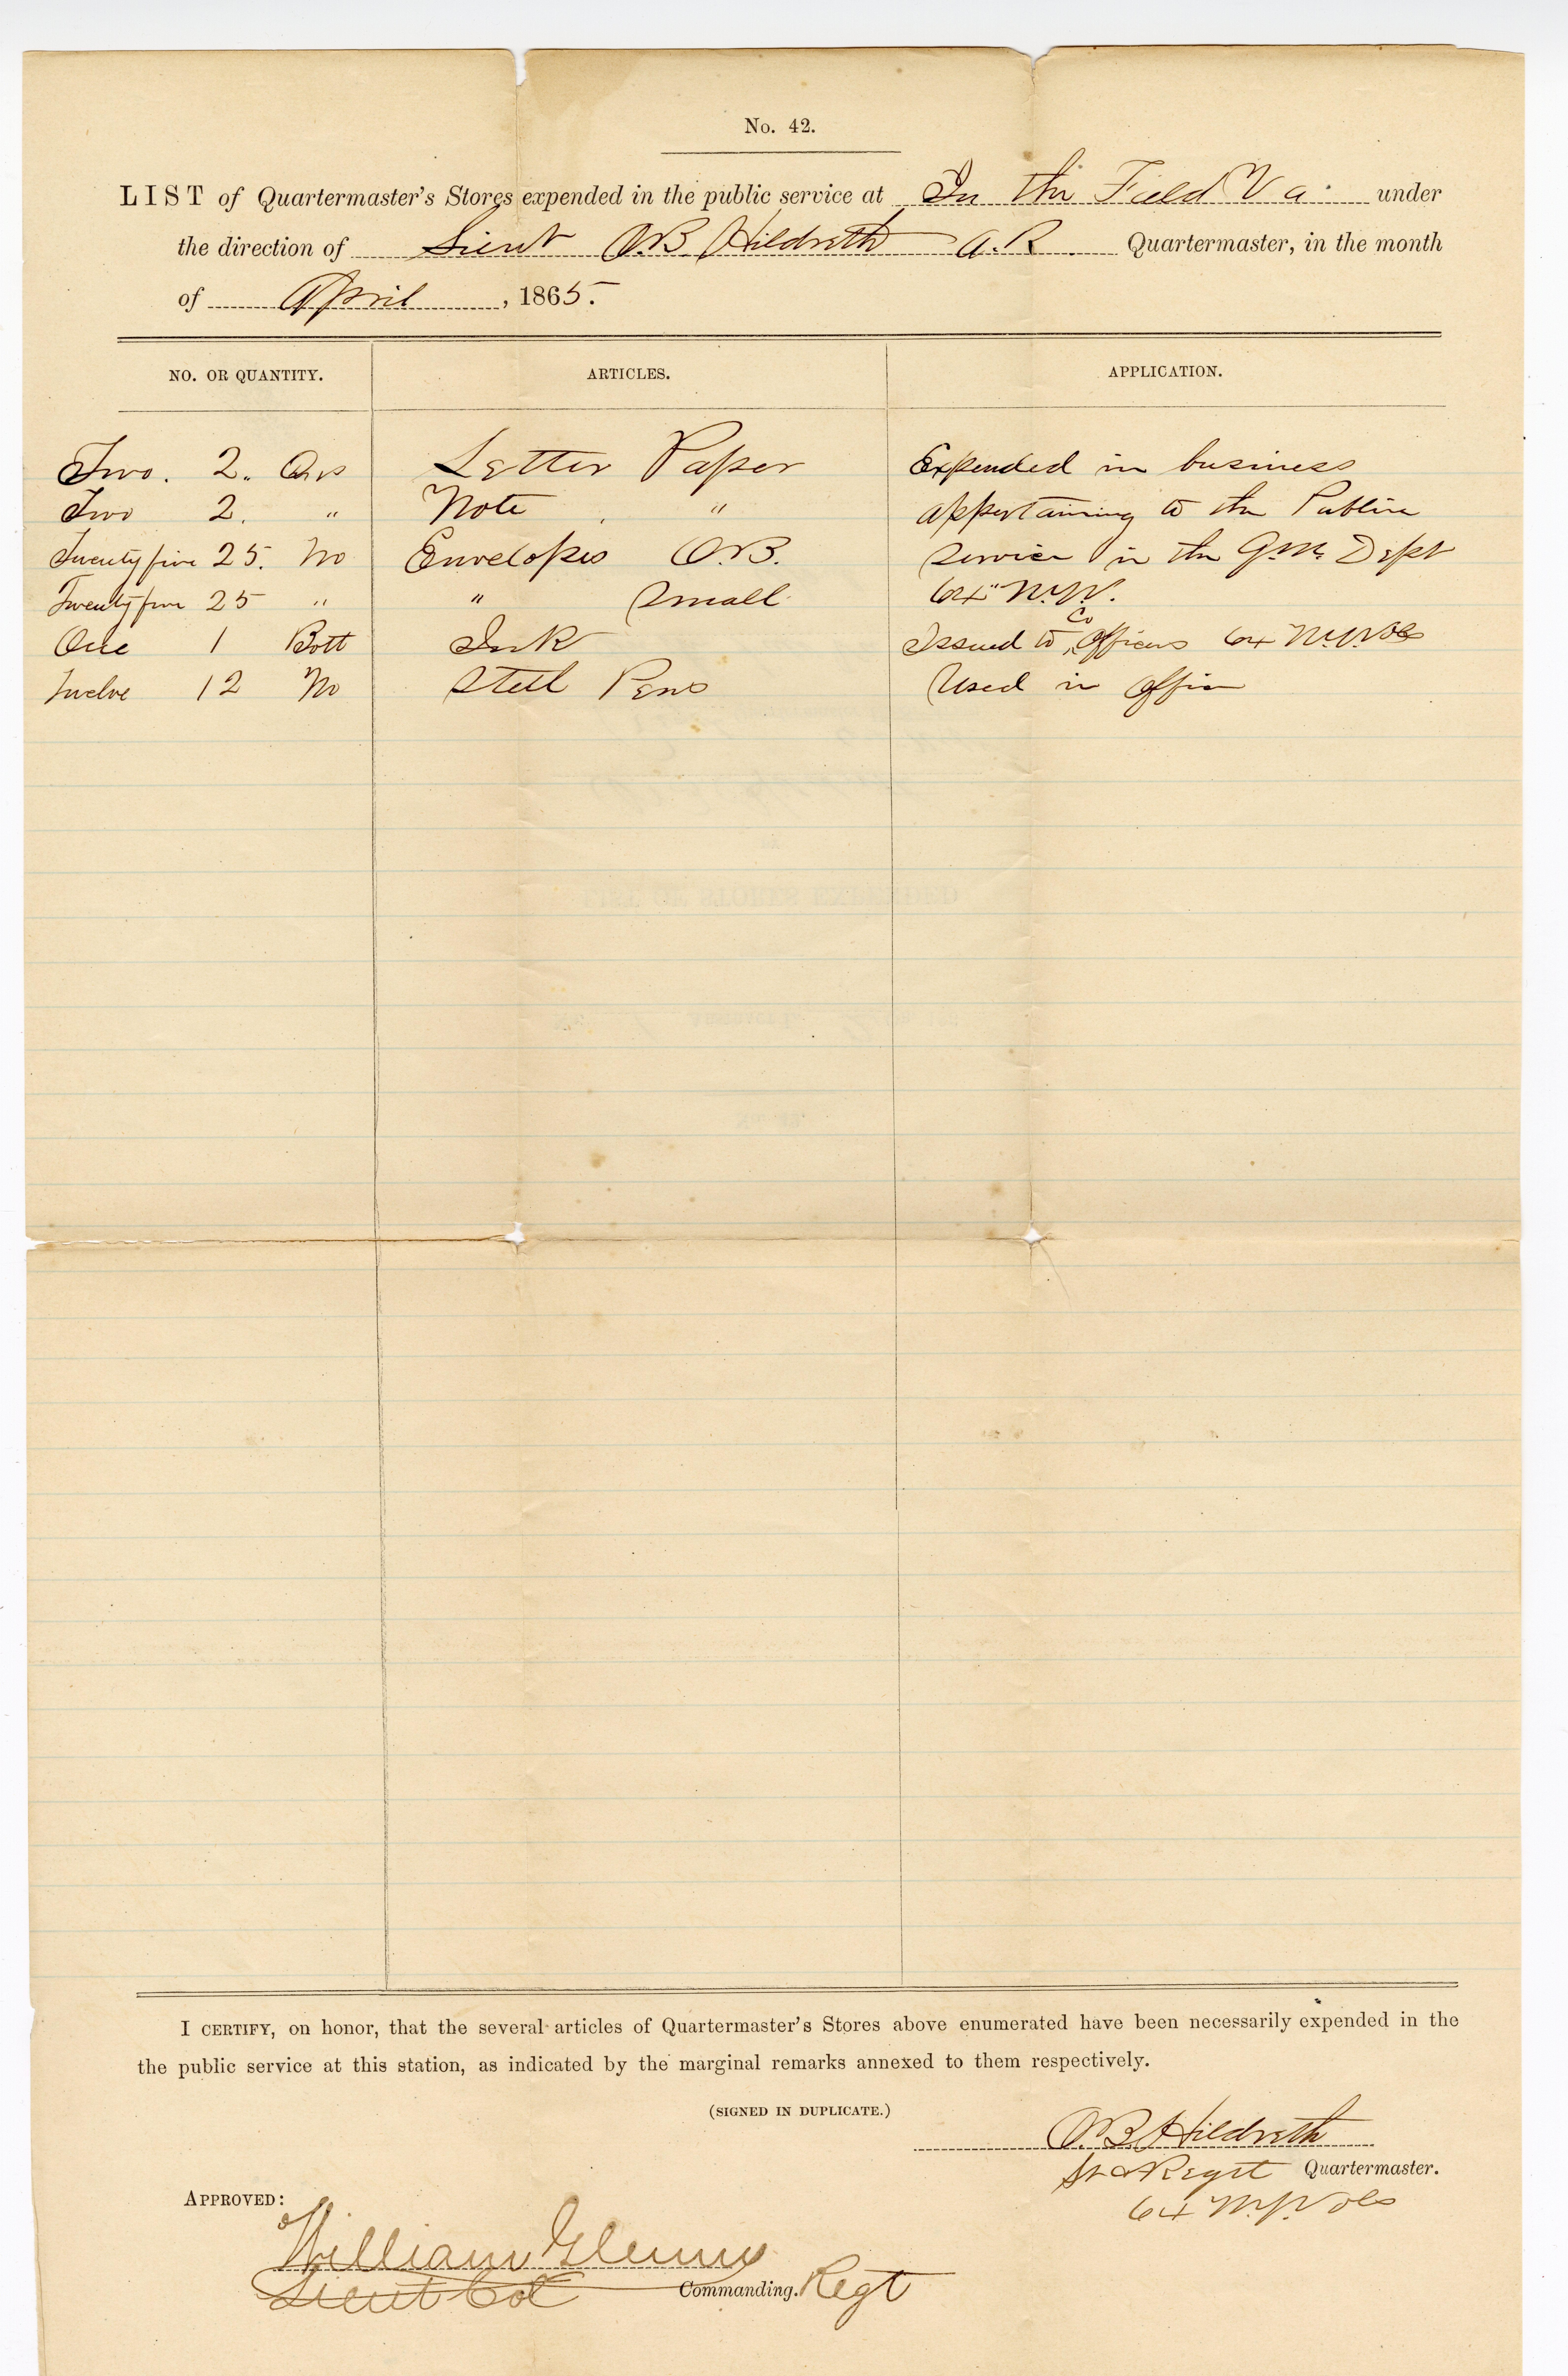 No. 42.
LIST of Quartermaster's Stores expended in the public service at In the Field Va. under
the direction of Lieut O.B. Hildreth A.R. Quartermaster, in the month
of April, 1865.
NO. OR QUANTITY. ARTICLES. APPLICATION.
Two. 2.. Qrs Letter Paper Expended in business
Two 2. " Note " appertaining to the Public
Twenty five 25. No Envelopes O.B. Service in the Q.M. Dept
Twenty five 25 " " Small 64" N.Y.V.
One 1 Bott Ink Issued to Co Officers 64 N.Y. Vols
Twelve 12 No Steel Pens Used in Office
I CERTIFY, on honor, that the several articles of Quartermaster's Stores above enumerated have been necessarily expended in the
the public service at this station, as indicated by the marginal remarks annexed to them respectively.
(SIGNED IN DUPLICATE.)
O.B. Hildreth
Lt & Regt Quartermaster.
64 N.Y. Vols
APPROVED:
William Glenny
Lieut Col Commanding. Regt